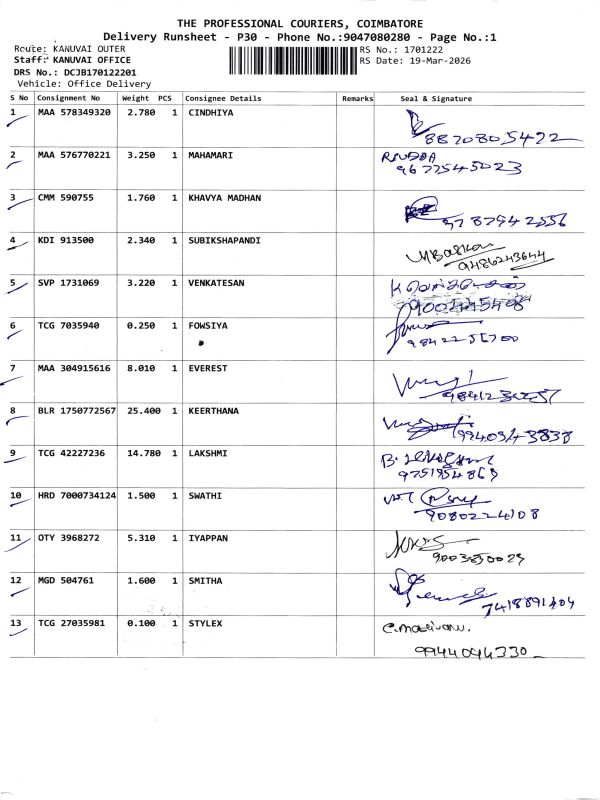 THE PROFESSIONAL COURIERS, COIMBATORE
Delivery Runsheet - P30 - Phone No.:9047080280 - Page No.:1
Route: KANUVAI OUTER RS No.: 1701222
Staff: KANUVAI OFFICE RS Date: 19-Mar-2026
DRS No.: DCJB170122201
Vehicle: Office Delivery
S No Consignment No Weight PCS Consignee Details Remarks Seal & Signature
1 MAA 578349320 2.780 1 CINDHIYA
8870805422
2 MAA 576770221 3.250 1 MAHAMARI
9677545023
3 CMM 590755 1.760 1 KHAVYA MADHAN
4 KDI 913500 2.340 1 SUBIKSHAPANDI
M Baskar
9486243644
5 SVP 1731069 3.220 1 VENKATESAN
6 TCG 7035940 0.250 1 FOWSIYA
7 MAA 304915616 8.010 1 EVEREST
8 BLR 1750772567 25.400 1 KEERTHANA
9 TCG 42227236 14.780 1 LAKSHMI
9751954863
10 HRD 7000734124 1.500 1 SWATHI
9080224108
11 OTY 3968272 5.310 1 IYAPPAN
9003850023
12 MGD 504761 1.600 1 SMITHA
7418891404
13 TCG 27035981 0.100 1 STYLEX
9944044330